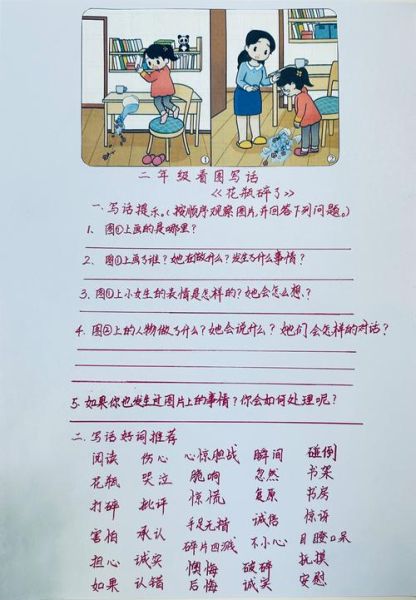 ①
②
二年级看图写话
《花瓶碎了》
一、写话提示。(按顺序观察图片,并回答下列问题。)
1. 图①上画的是哪里?
2. 图①上画了谁?她在做什么?发生了什么事情?
3. 图①上小女生的表情是怎样的?她会怎么想?
4. 图②上的人物做了什么?她会说什么?她们会怎样的对话?
5. 如果你也发生过图片上的事情?你会如何处理呢?
二、写话好词推荐
阅读 伤心 心惊胆战 瞬间 碰倒
花瓶 哭泣 脆响 忽然 书架
打碎 批评 惊慌 复原 书房
害怕 承认 手足无措 诚信 惊讶
担心 诚实 碎片四溅 不小心 目瞪口呆
如果 认错 懊悔 破碎 抚摸
后悔 诚实 安慰